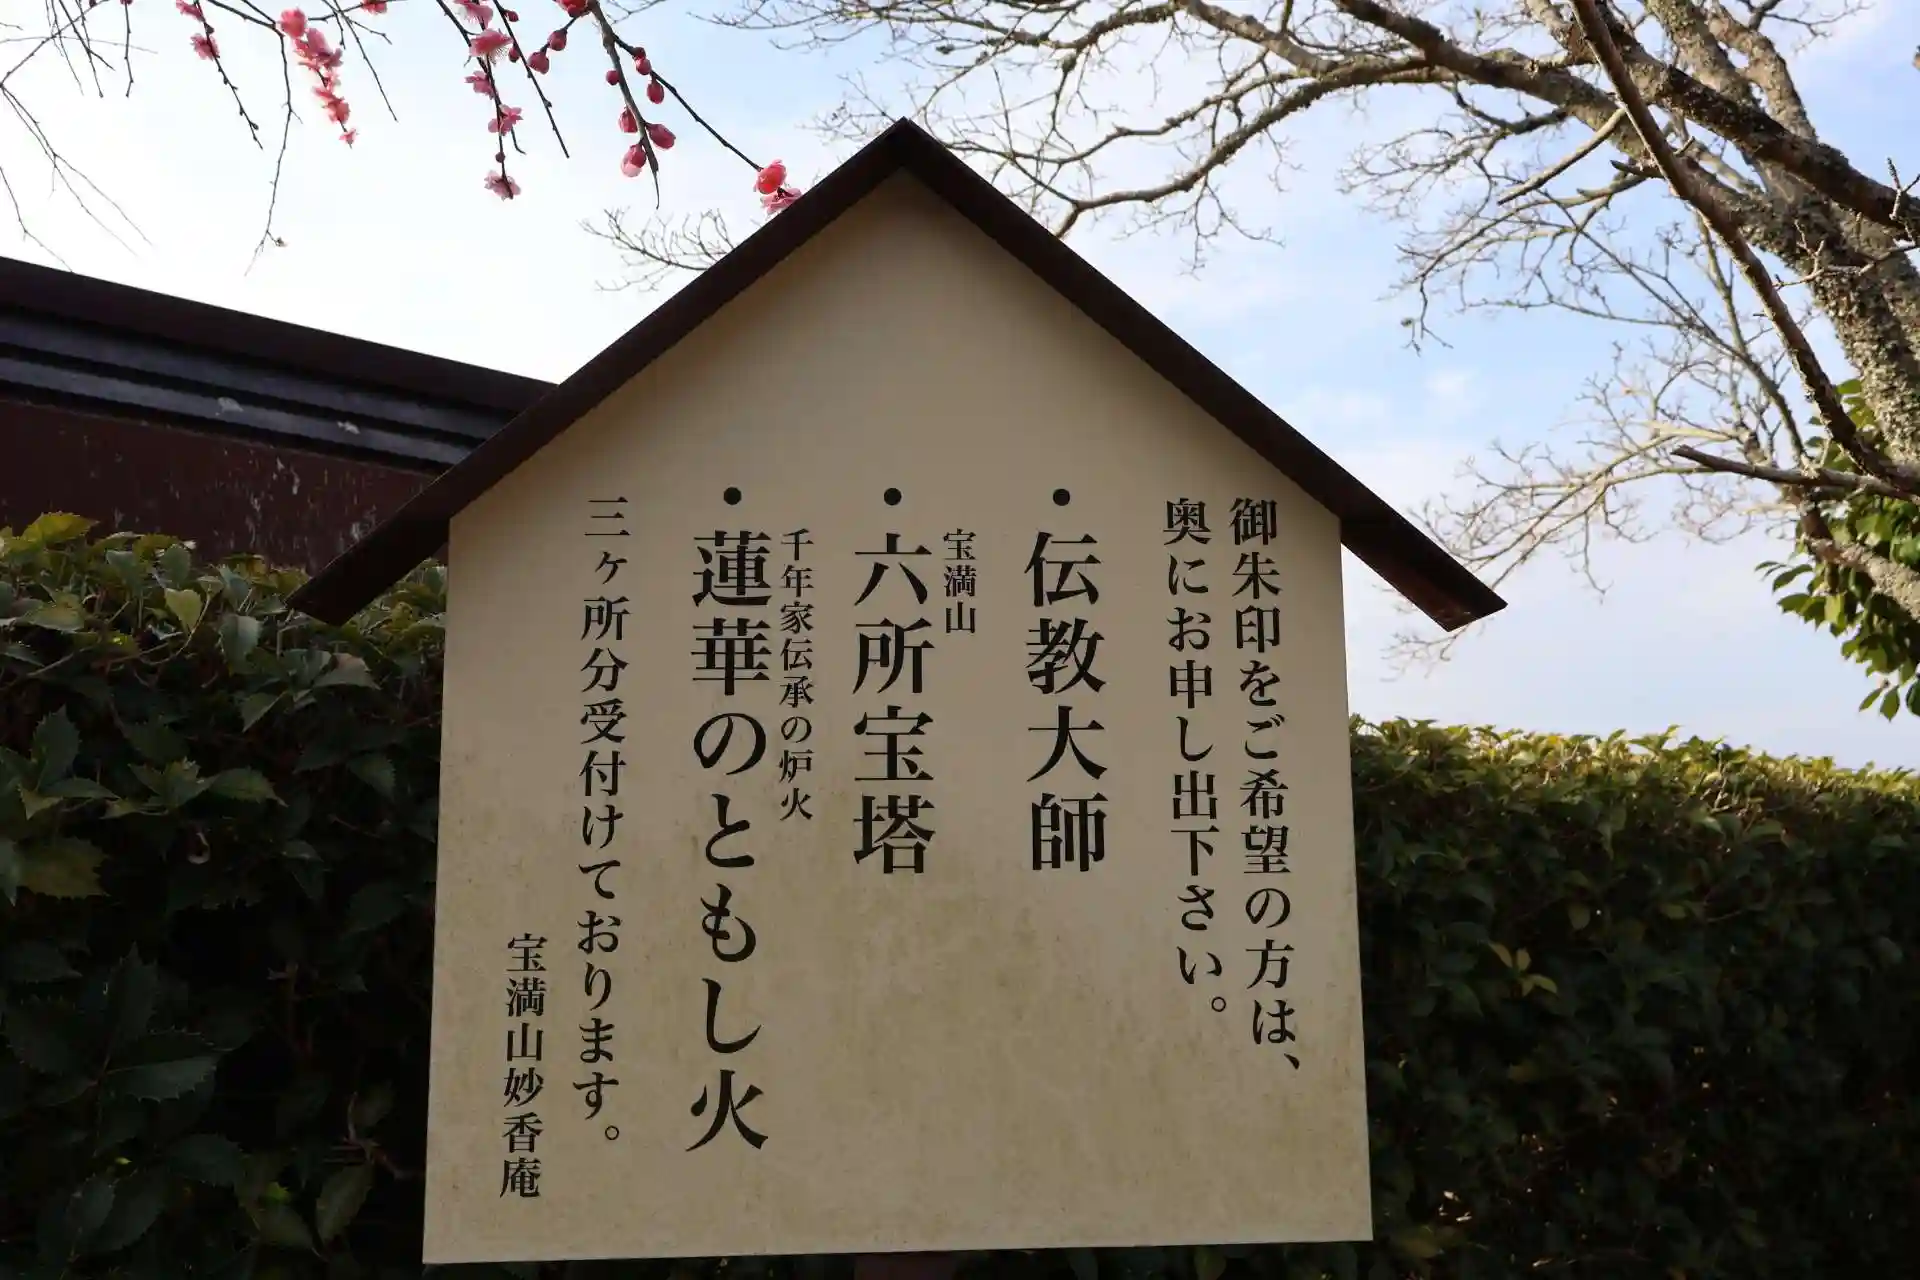 御朱印をご希望の方は、
奥にお申し出下さい。
・伝教大師
宝満山
・六所宝塔
千年家伝承の炉火
・蓮華のともし火
三ヶ所分受付けております。
宝満山妙香庵